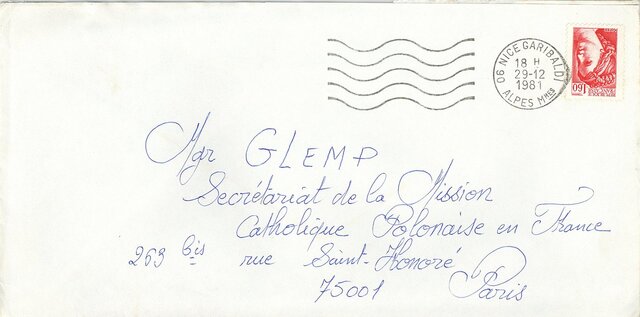 06 NICE GARIBALDI
18 H
29-12
1981
ALPES MMES
1,60
Mgr GLEMP
Secrétariat de la Mission
Catholique Polonaise en France
263 bis rue Saint-Honoré
75001 Paris